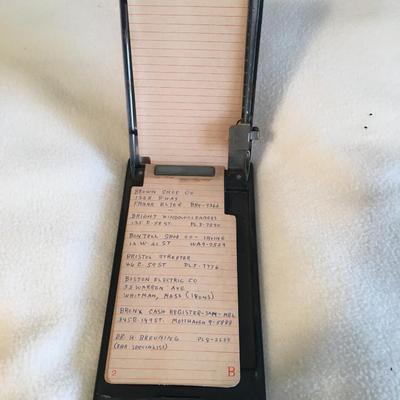 BROWN SHOE CO
1228 B'WAY
FRANK ELTER BRY-7366
BRIGHT WINDOW CLEANERS
135 E. 58 ST PL3-
BONTELL SHOE CO - IRVING
12 W. 21 ST WA9-2529
BRISTOL STREETER
46 E. 59 ST PL5-7776
BOSTON ELECTRIC CO
32 WARREN AVE
WHITMAN, MASS
BRONX CASH REGISTER-SAM-MEL
345 E. 149 ST. MOTTHAVEN 9-5888
DR. H. BREUNING PL8-
(EAR SPECIALIST)
2 B